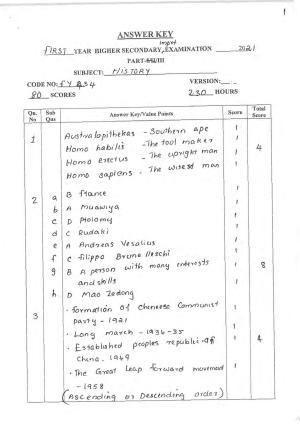 1
ANSWER KEY
Imprvt
FIRST YEAR HIGHER SECONDARY EXAMINATION 2021
PART-I/II/III
SUBJECT: HISTORY
CODE NO: FY 834 VERSION:
80 SCORES 2 30 HOURS
Qn. No Sub Qns Answer Key/Value Points Score Total Score
1 Australopithekas - Southern ape 1
Homo habilis - The tool maker 1 4
Homo erectus - The upright man 1
Homo sapiens - The wisest man 1
2 a B France 1
b A Muawiya 1
c D Ptolomy 1
d C Rudaki 1
e A Andreas Vesalius 1
f C filippo Brunelleschi 1
g B A person with many interests and skills 1 8
h D Mao Zedong 1
3 . formation of Cheneese Communist party - 1921 1
. Long march - 1934-35 1
. Established peoples republic of China - 1949 1 4
. The Great Leap forward movement - 1958 1
(Ascending or Descending order)